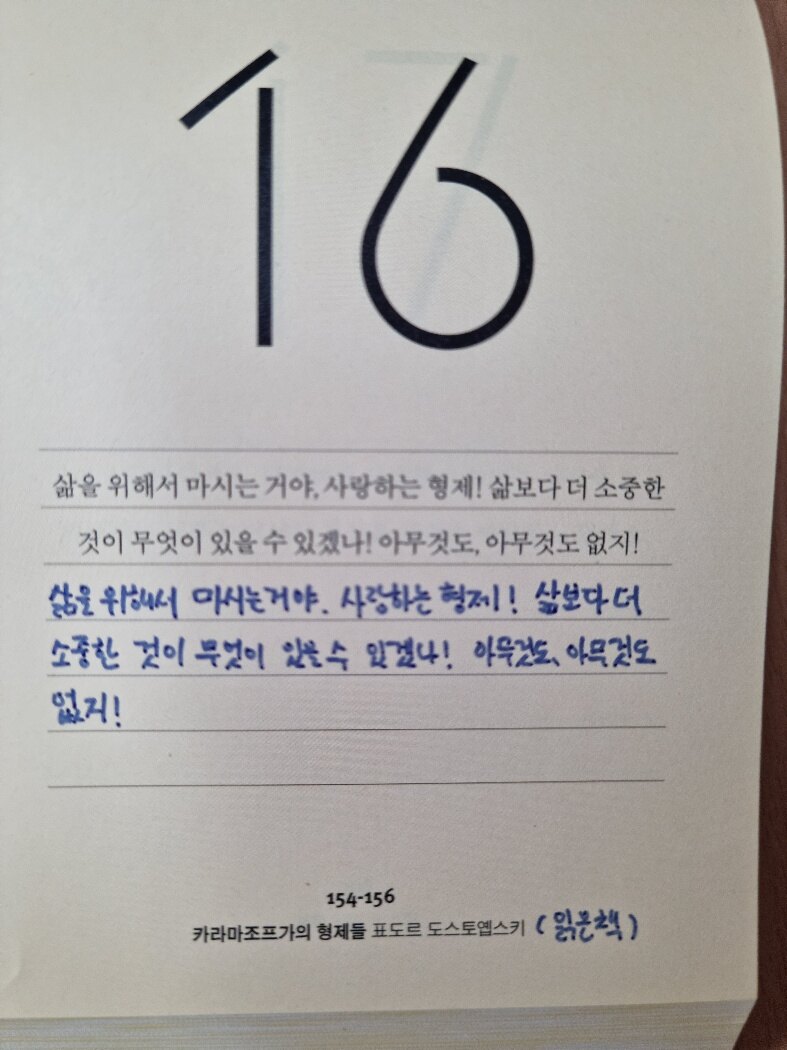 16
삶을 위해서 마시는 거야, 사랑하는 형제! 삶보다 더 소중한
것이 무엇이 있을 수 있겠나! 아무것도, 아무것도 없지!
삶을 위해서 마시는거야. 사랑하는 형제! 삶보다 더
소중한 것이 무엇이 있을 수 있겠나! 아무것도, 아무것도
없지!
154-156
카라마조프가의 형제들 표도르 도스토옙스키 (읽은책)